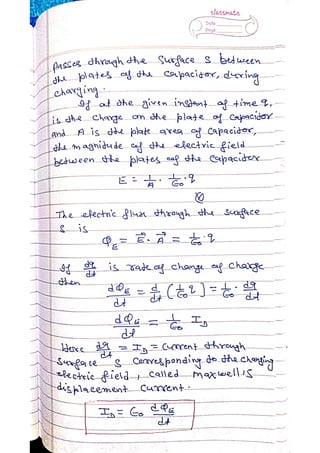 classmate
Date
Page
Passes through the Surface S between
the plates of the capacitor, during
charging.
If at the given instant of time q,
is the charge on the plate of capacitor
and A is the plate area of Capacitor,
the magnitude of the electric field
between the plates of the Capacitor
E = 1/A · 1/ϵ₀ · q
The electric flux through the surface
S is
Φ_E = E⃗ · A⃗ = 1/ϵ₀ · q
If dq/dt is rate of change of charge
then
dΦ_E/dt = d/dt (1/ϵ₀ q) = 1/ϵ₀ · dq/dt
dΦ_E/dt = 1/ϵ₀ I_D
Here dq/dt = I_D = Current through
Surface S Corresponding to the changing
electric field, called maxwell's
displacement current.
I_D = ϵ₀ dΦ_E/dt